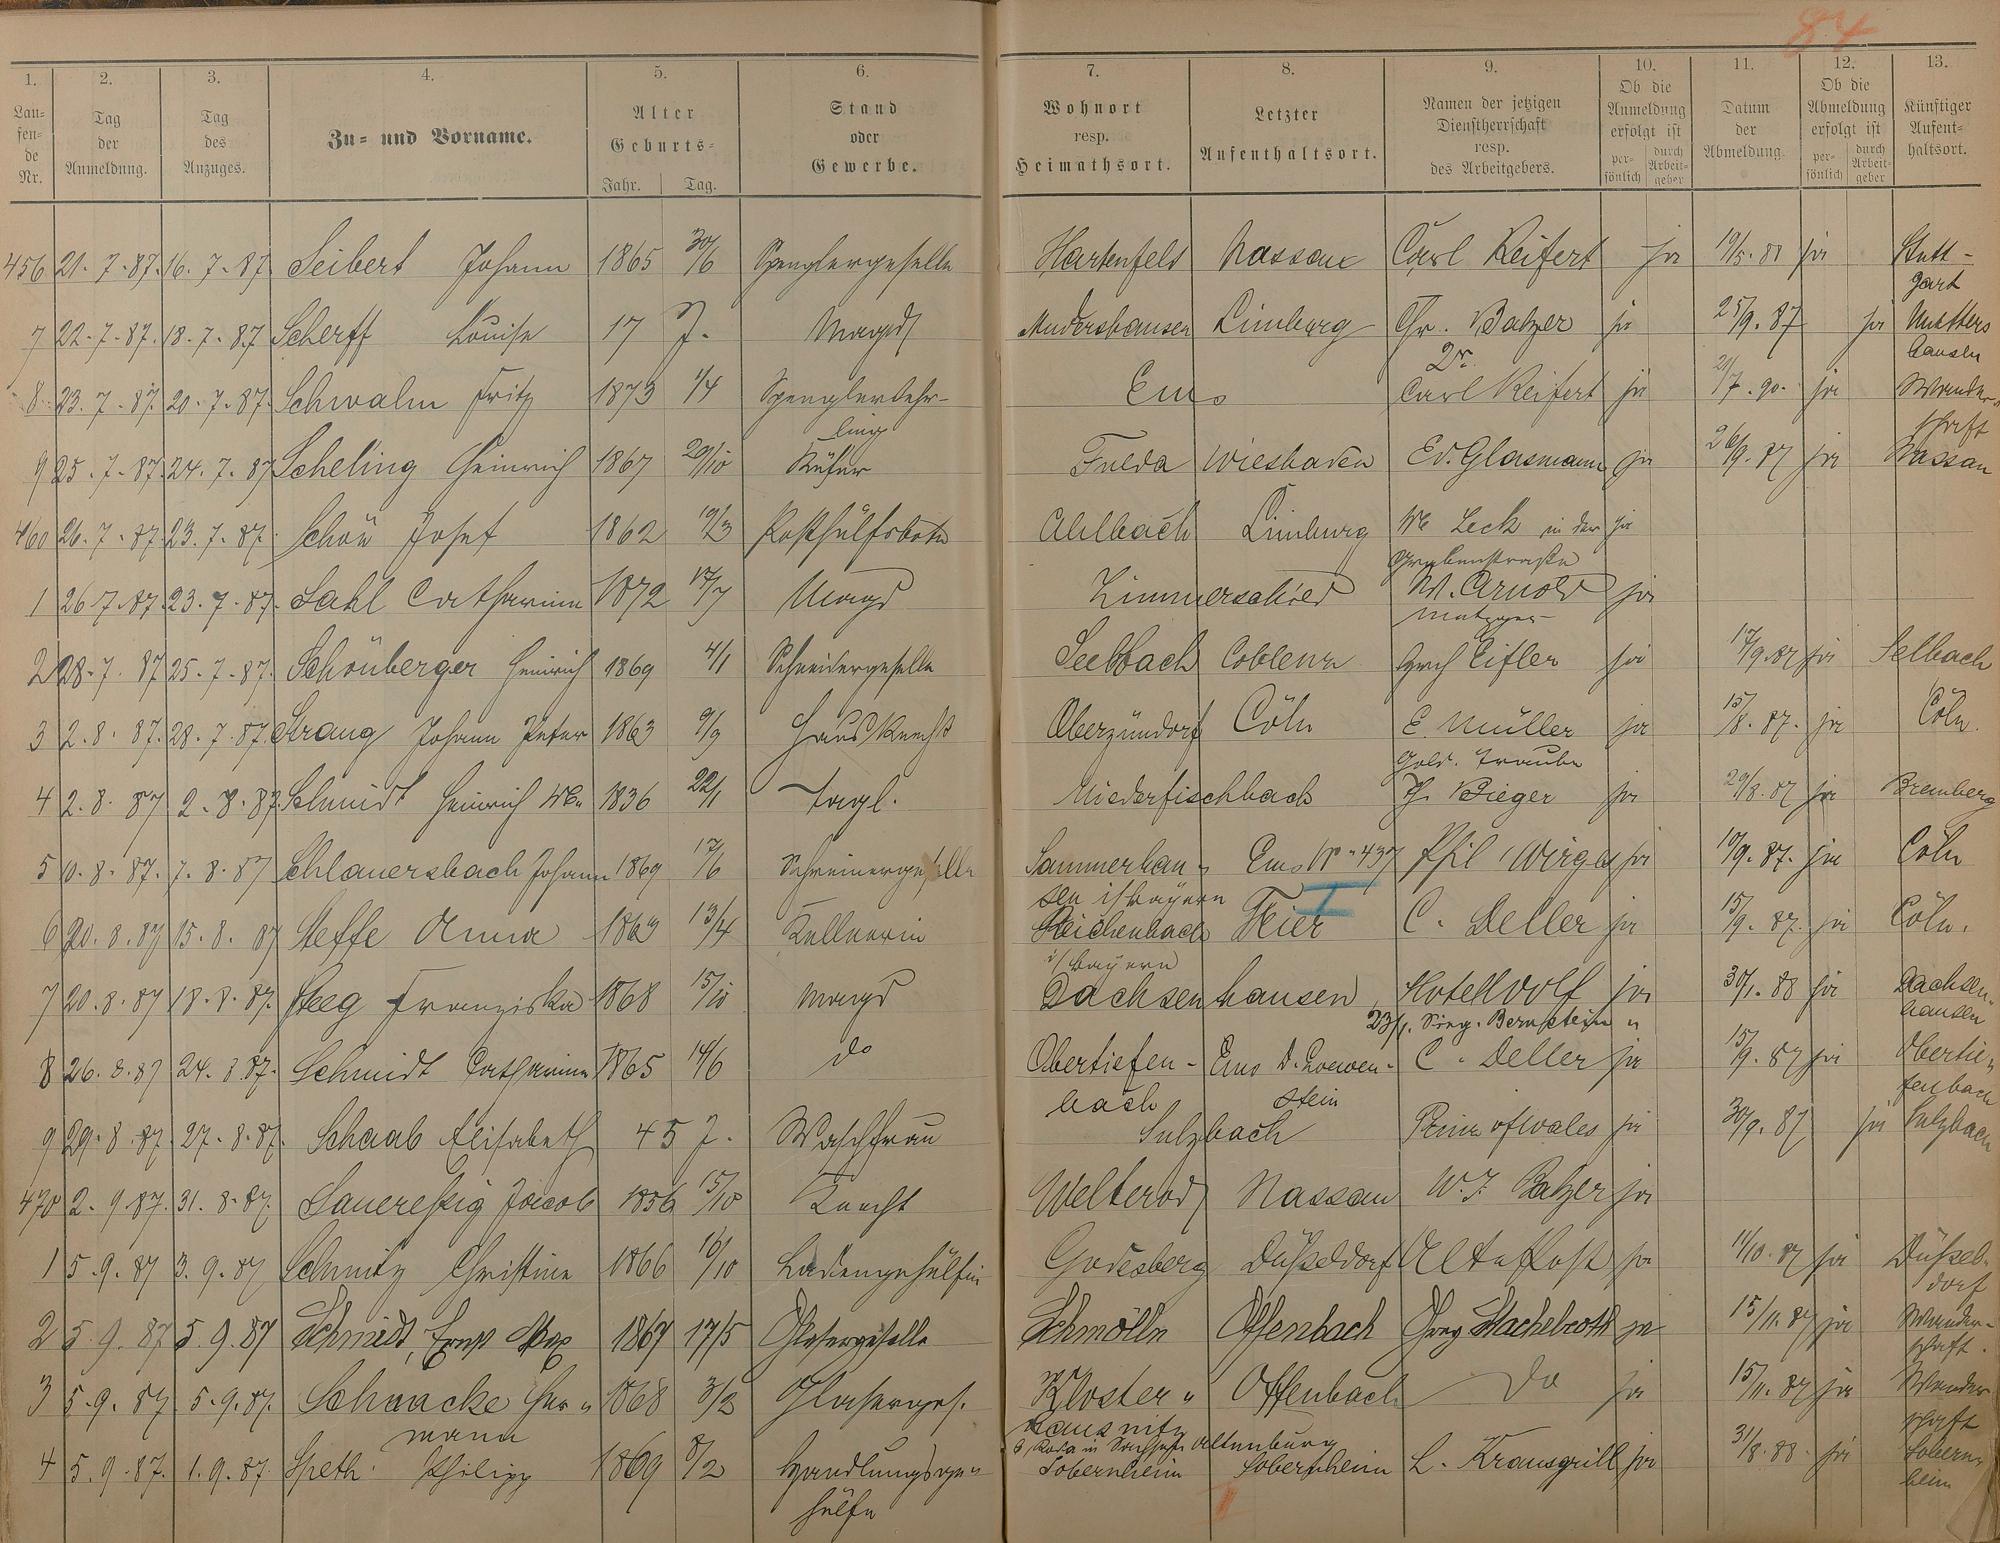 84
1. 2. 3. 4. 5. 6. 7. 8. 9. 10. 11. 12. 13.
Lau=fen=de Nr. Tag der Anmeldung. Tag des Anzuges. Zu= und Vorname. Alter Geburts= Jahr. Tag. Stand oder Gewerbe. Wohnort resp. Heimathsort. Letzter Aufenthaltsort. Namen der jetzigen Dienstherrschaft resp. des Arbeitgebers. Ob die Anmeldung erfolgt ist per=sönlich durch Arbeit=geber Datum der Abmeldung. Ob die Abmeldung erfolgt ist per=sönlich durch Arbeit=geber Künftiger Aufent=haltsort.
456 21. 7. 87. 16. 7. 87. Seibert Johann 1865 30/6 Spenglergeselle Hartenfels Nassau Carl Reifert ja 19/5. 88 ja Stutt-
gart
7 22. 7. 87. 18. 7. 87. Scherff Louise 17 J. Magd Mudershausen Limburg Chr. Balzer ja 25/9. 87 ja
Dr. hausen
8 23. 7. 87. 20. 7. 87. Schwalm Fritz 1873 1/4 Spenglerlehr- Ems Carl Reifert ja 21/7. 90. ja Wander-
ling schaft
9 25. 7. 87. 24. 7. 87 Scheling Heinrich 1867 20/10 Küfer Fulda Wiesbaden Ed. Glasmann ja 26/9. 87 ja Nassau
460 26. 7. 87. 23. 7. 87. Schön Josef 1862 19/3 Posthülfsbote Ahlbach Limburg We Leck in der ja
Grabenstraße
1 26 7. 87. 23. 7. 87. Sahl Catharina 1872 17/7 Magd Zimmerschied W. Arnold ja
Metzger
2 28. 7. 87 25. 7. 87. Schönberger Heinrich 1869 4/1 Schneidergeselle Seelbach Coblenz Eifler ja 17/9. 87 ja Selbach
3 2. 8. 87. 28. 7. 87. Strang Johann Peter 1863 9/9 Hausknecht Oberzündorf Cöln E. Müller ja 15/8. 87. ja Cöln.
Gold. Traube
4 2. 8. 87 2. 8. 87. Schmidt Heinrich We. 1836 22/1 Tagl. Niederfischbach Th. Bieger ja 29/8. 87 ja Bremberg
5 10. 8. 87. 7. 8. 87 Schlauersbach Johann 1869 17/6 Schreinergeselle Sammerhau- Ems No 437 Phil. Wirges ja 10/9. 87. ja Cöln
sen i/Bayern
6 20. 8. 87 15. 8. 87 Steffe Anna 1863 13/4 Kellnerin Reichenbach Trier C. Deller ja 15/9. 87. ja Cöln.
i/Bayern
7 20. 8. 87 18. 8. 87. Steeg Franziska 1868 15/10 Magd Dachsenhausen Hotel Wolf ja 30/1. 88 ja Dachsen-
23/1. Bernstein " hausen
8 26. 8. 87 24. 8. 87. Schmidt Catharina 1865 14/6 do Obertiefen- Ems D. Loewen- C. Deller ja 15/9. 87 ja Obertie-
bach stein fenbach
9 29. 8. 87. 27. 8. 87. Schaab Elisabeth 45 J. Waschfrau Sulzbach Prince of Wales ja 30/9. 87 ja Sulzbach
470 2. 9. 87. 31. 8. 87. Saueressig Jacob 1856 15/10 Knecht Welterod Nassau W. J. Balzer ja
1 5. 9. 87 3. 9. 87 Schmitz Christine 1866 16/10 Ladengehülfin Godesberg Düsseldorf Alte Post ja 11/10. 87 ja Düssel-
dorf
2 5. 9. 87 5. 9. 87 Schmidt, Ernst Max 1867 17/5 Glasergeselle Schmölln Offenbach Stachelroth ja 15/11. 87 ja Wander-
schaft.
3 5. 9. 87 5. 9. 87. Schaacke Her- 1868 3/2 Glaserges. Kloster- Offenbach do ja 15/11. 87 ja Wander
mann Lausnitz schaft
b/ Roda in Sachsen Altenburg
4 5. 9. 87. 1. 9. 87. Speth Philipp 1869 8/2 Handlungsge- Sobernheim Sobernheim L. Krausgrill ja 31/8. 88. ja Sobern-
hülfe heim